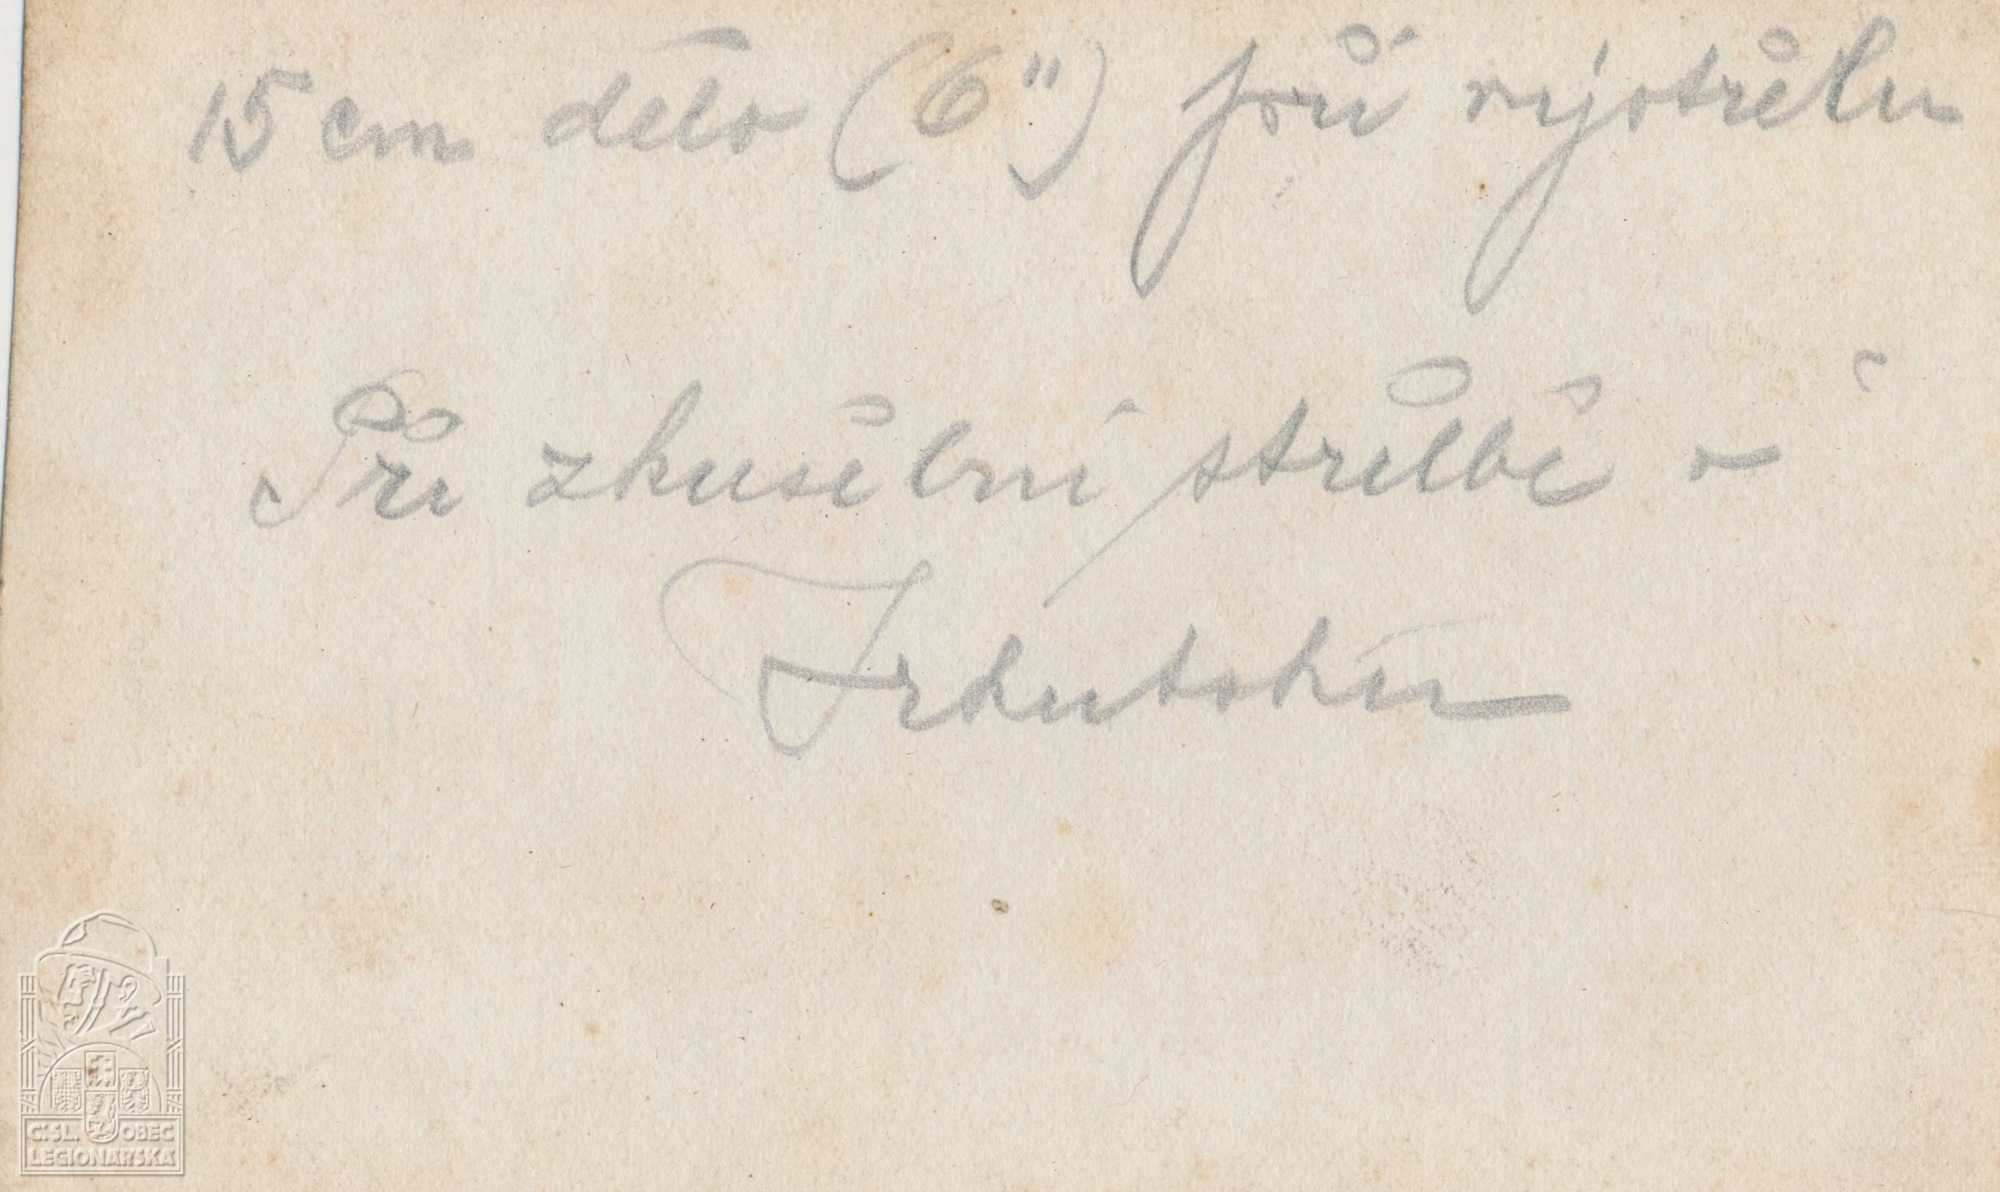 15 cm dělo (6") při výstřelu
Při zkušební střelbě v
Irkutsku
Č.SL. OBEC
LEGIONÁŘSKÁ